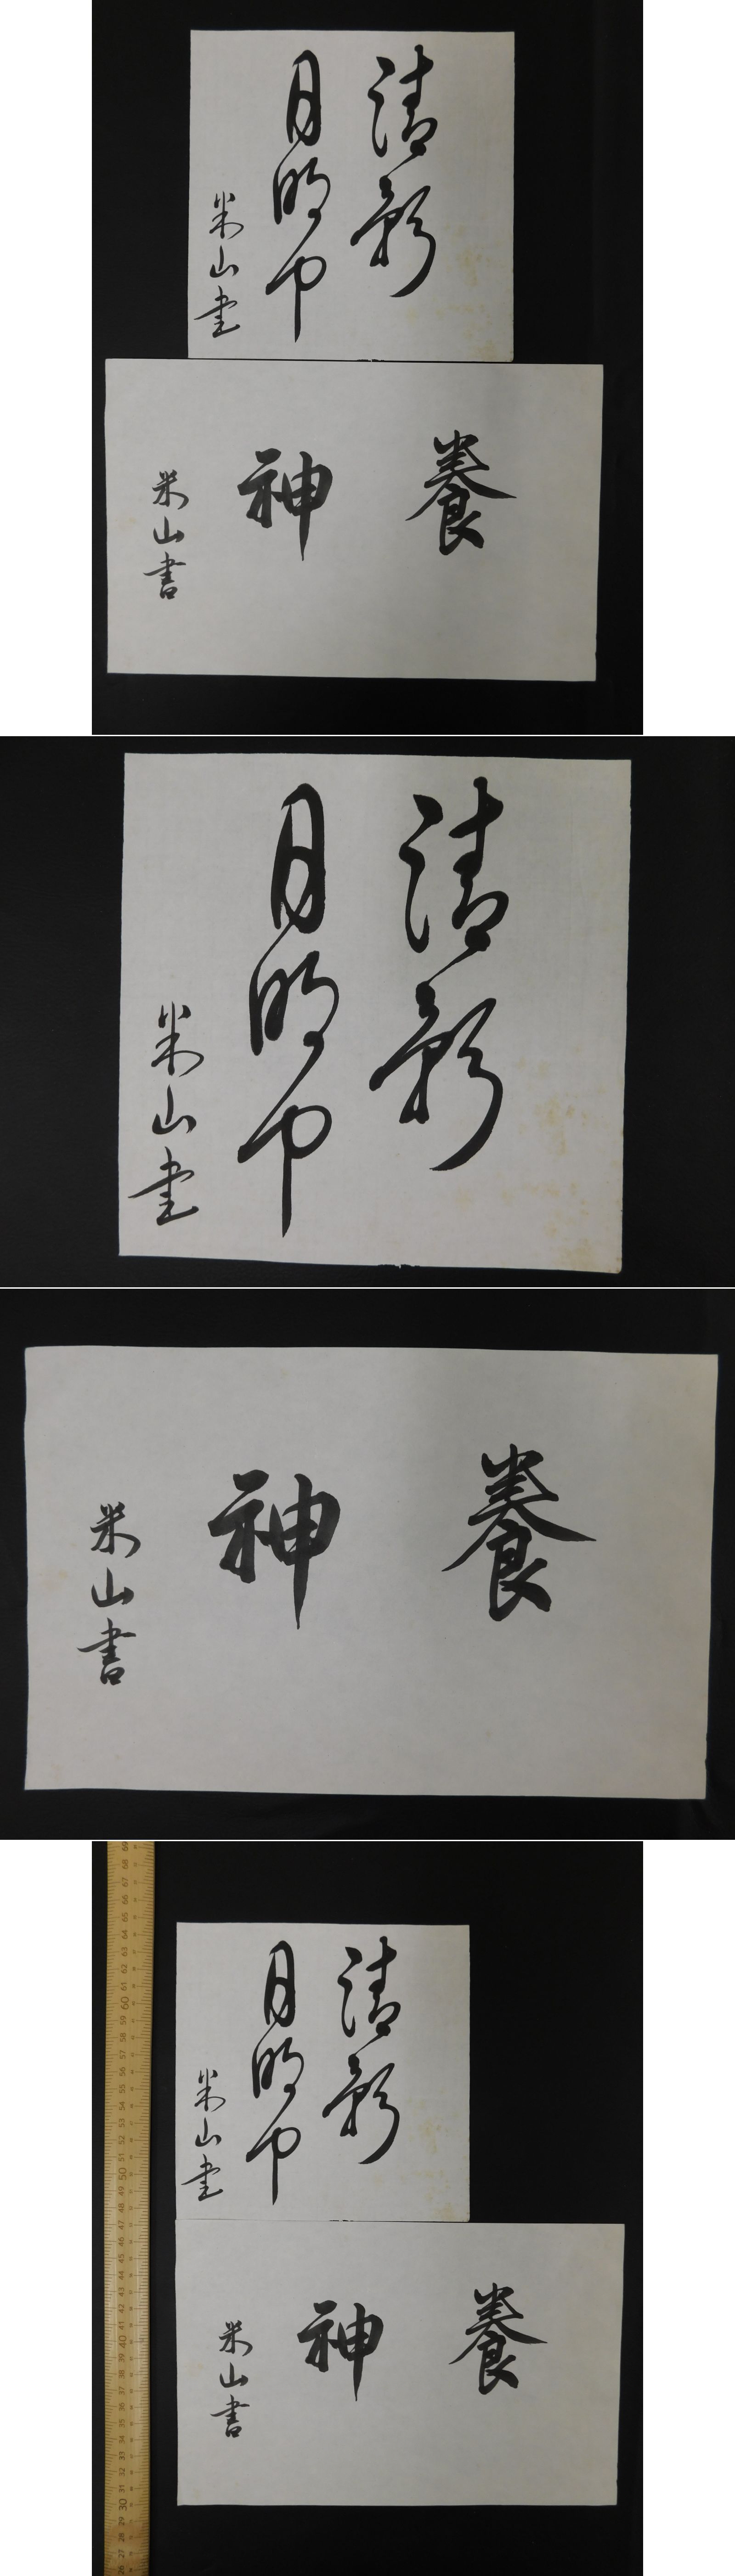 清影
月明中
米山書
養神
米山書
清影
月明中
米山書
養神
米山書
清影
月明中
米山書
養神
米山書